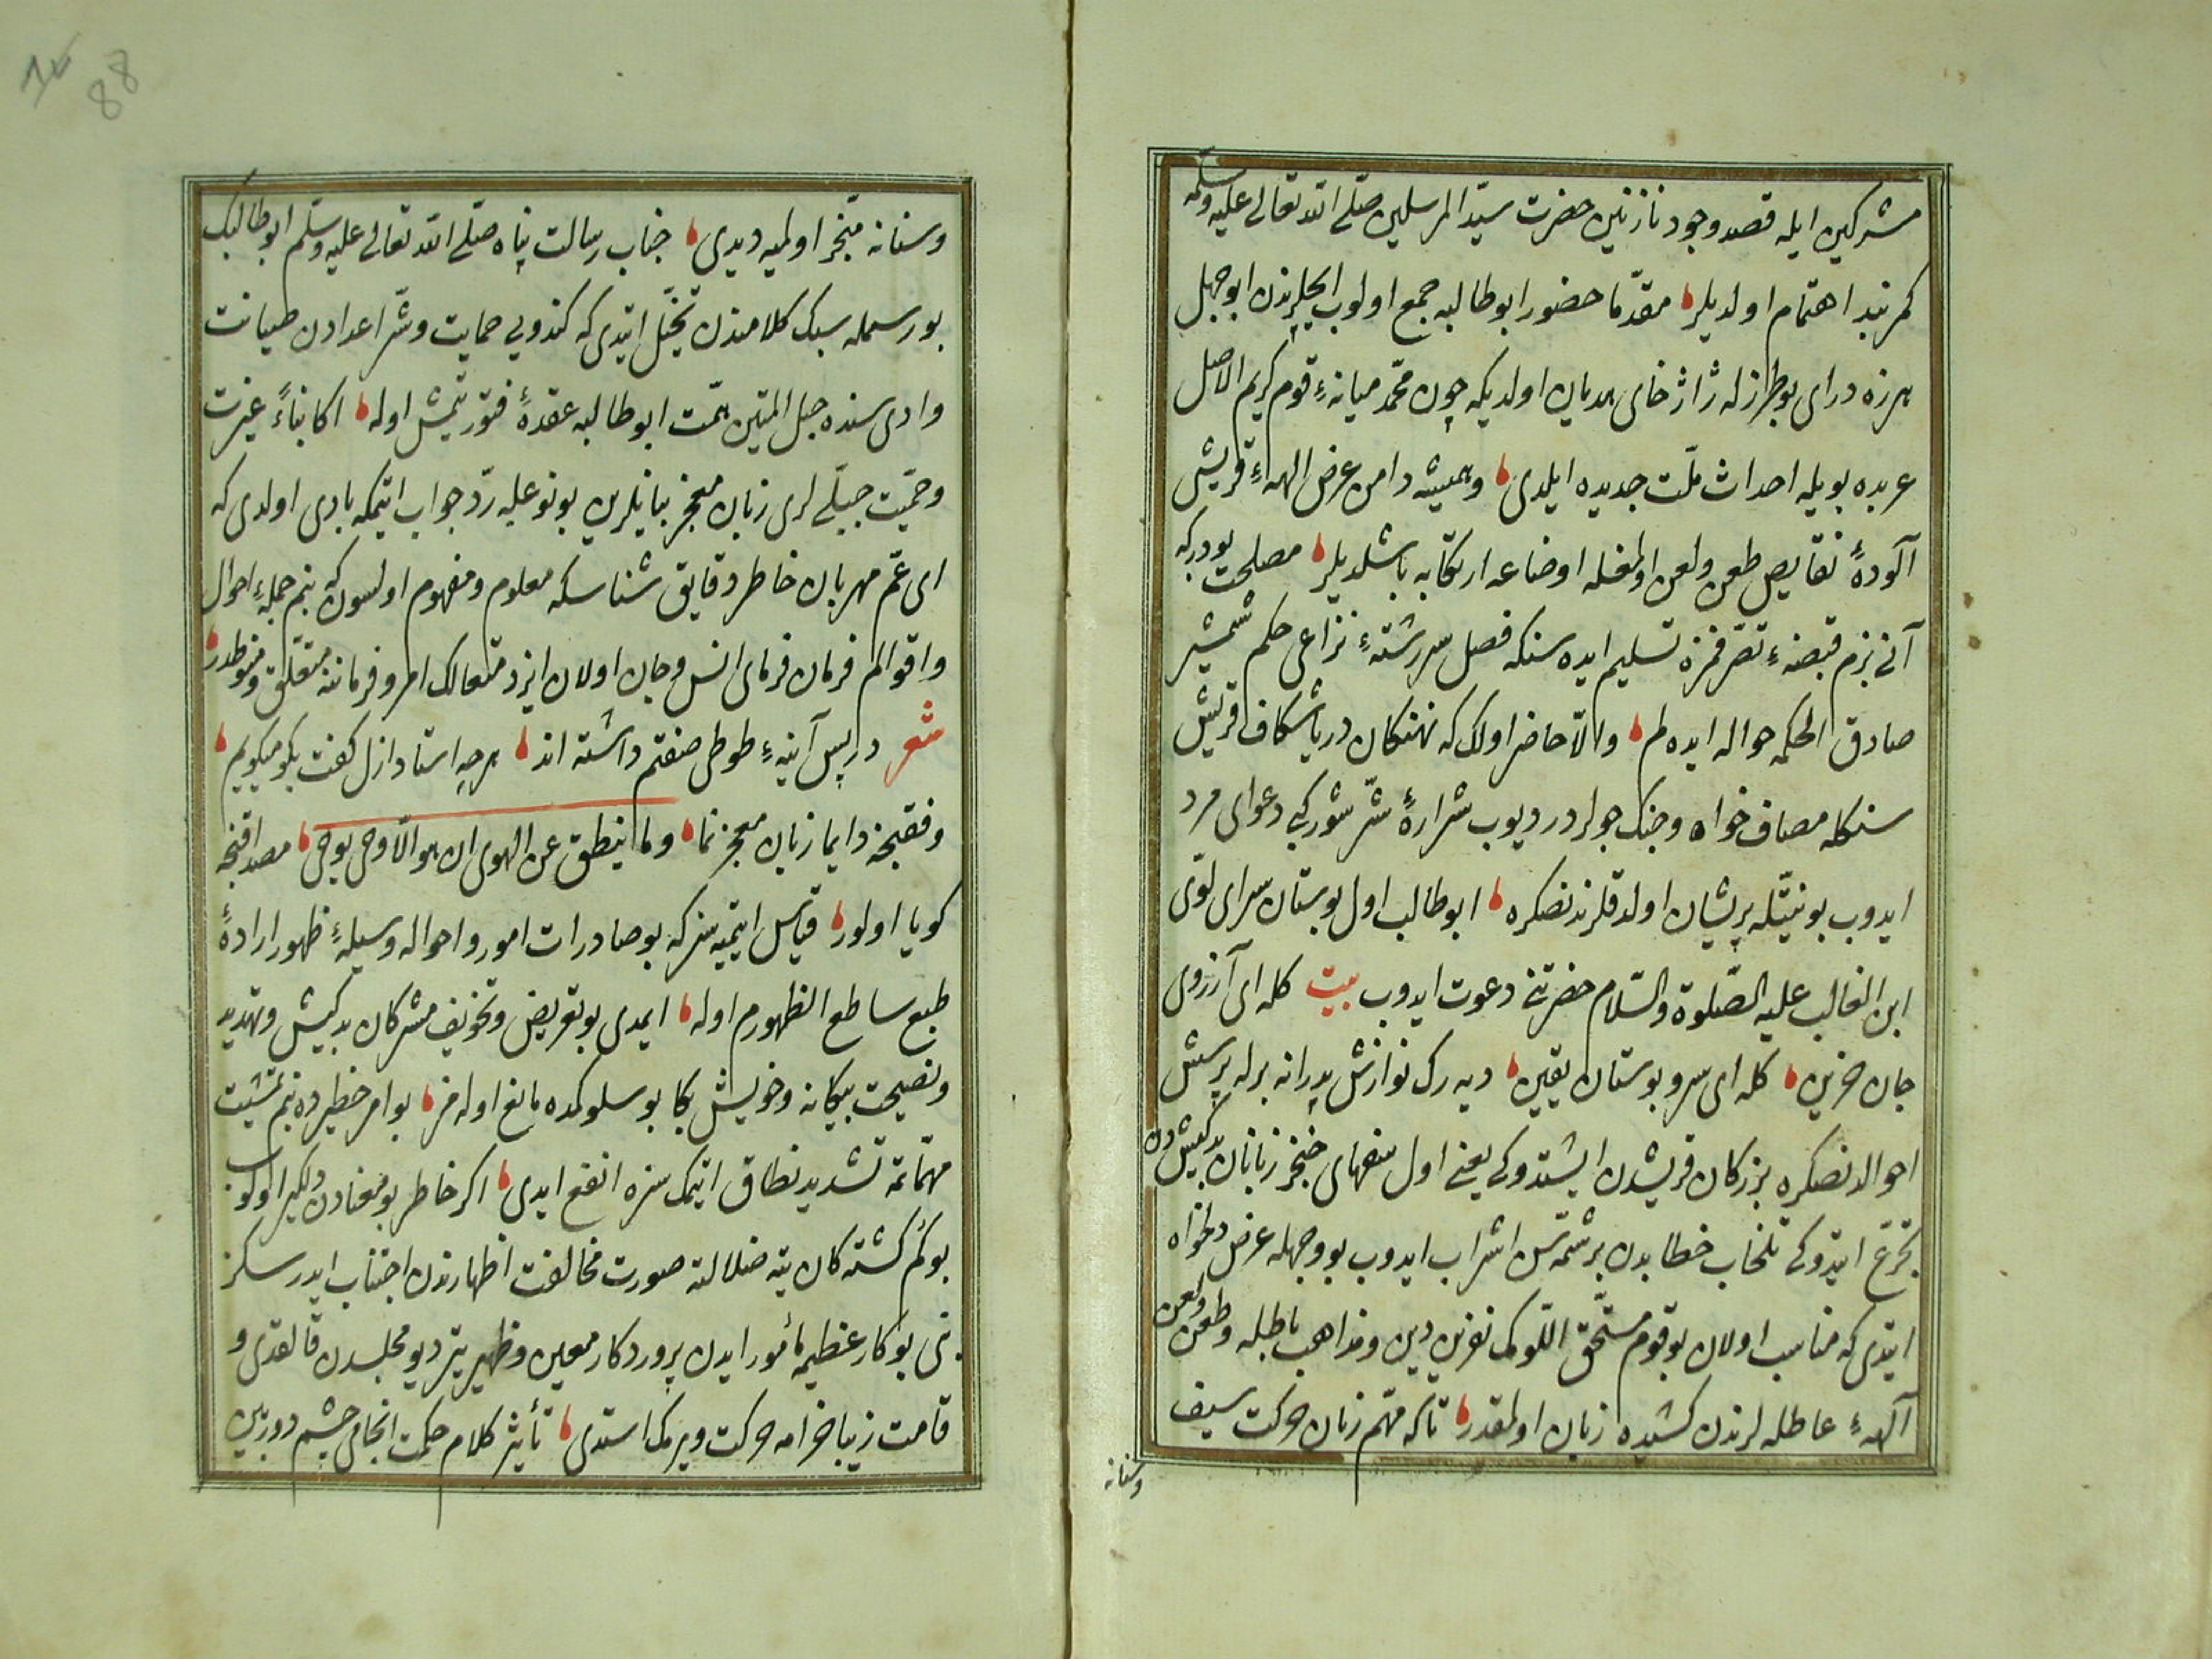 مشركين ايله قصد وجود نازنين حضرت سيّد المرسلين صلّى الله تعالى عليه وسلمه
كمربند اهتمام اولديلر مقدّما حضور ابو طالبه جمع اولوب ايچلرندن ابو جهل
هرزه دراى بو طرزله ژاژخاى هذيان اولديكه چون محمّد ميانهٔ قوم كريم الاصل
عربده بويله احداث ملّت جديده ايلدى وهميشه دامن عرض الههٔ قريشى
آلودهٔ نقايص طعن ولعن اولمغله اوضاعه ارتكابه باشلديلر مصلحت بودركه
آنى بزم قبضهٔ تصرّفمزه تسليم ايده سنكه فصل سررشتهٔ نزاعى حكم شمشير
صادق الحكمه حواله ايده لم والاّ حاضر اولك كه نهنكان درياشكاف قريش
سنكله مصاف خواه وجنك جولردر ديوب شرارهٔ شرّ شوركبى دعواى مرد
ايدوب بو نيّتله پريشان اولدقلرندنصكره ابو طالب اول بوستان سراى لوّى
ابن الغالب عليه الصّلوة والسّلام حضرتنى دعوت ايدوب بيت كله اى آرزوى
جان حزين كله اى سرو بوستان يقين ديه رك نوازش پدرانه برله پرسش
احوالدنصكره بزركان قريشدن ايشتدوكى يعنى اول سفهاى خنجر زبانان بدكيش دن
تجرّع ايتدوكى تلخاب خطابدن بر شمّه سن اشراب ايدوب بو وجهله عرض دلخواه
ايتدى كه مناسب اولان بو قوم مستحقّ اللّومك نفرين دين ومذاهب باطله وطعن ولعن
آلههٔ عاطله لرندن كشيده زبان اولمقدر تاكه مهمّ زبان حركت سيف
وسنانه
88
وسنانه منجر اولميه ديدى جناب رسالت پناه صلّى الله تعالى عليه وسلّم ابو طالبك
بو رسمله سبك كلامندن تخيّل ايتدى كه كندويى حمايت وشرّ اعدادن صيانت
وادى سنده حبل المتين همّت ابو طالبه عقدهٔ فتور يتمش اوله اكا بناءً غيرت
وحميّت جبلّى لرى زبان معجز بيانلرين بو نوعله ردّ جواب ايتمكه بادى اولدى كه
اى عمّ مهربان خاطر دقايق شناسكه معلوم ومفهوم اولسون كه بنم جملهٔ احوال
واقوالم فرمان فرماى انس وجان اولان ايزد متعالك امر وفرماننه متعلّق ومنوطدر
شعر در پس آينهٔ طوطى صفتم داشته اند هرچه استاد ازل كفت بكو ميكويم
وفقنجه دايما زبان معجز نما وما ينطق عن الهوى ان هو الاّ وحى يوحى مصداقنجه
كويا اولور قياس ايتميه سزكه بو صادرات امور واحواله وسيلهٔ ظهور ارادهٔ
طبع ساطع الظهورم اوله ايمدى بو تعريض وتخويف مشركان بدكيش وتهديد
ونصيحت بيكانه وخويش بكا بو سلوكمده مانع اوله مز بو امر خطيرده بنم تمشيت
مهمّاتمه تشديد نطاق ايتمك سزه انفع ايدى اكر خاطر بو معنادن دلكير اولوب
بو كم كشته كان تيه ضلالته صورت مخالفت اظهارندن اجتناب ايدرسكز
بنى بو كار عظيمه مأمور ايدن پروردكار معين وظهير يتر ديو مجلسدن قالقدى و
قامت زيبا خرامه حركت ويرمك استدى تأثير كلام حكمت انجامى چشم دوربين